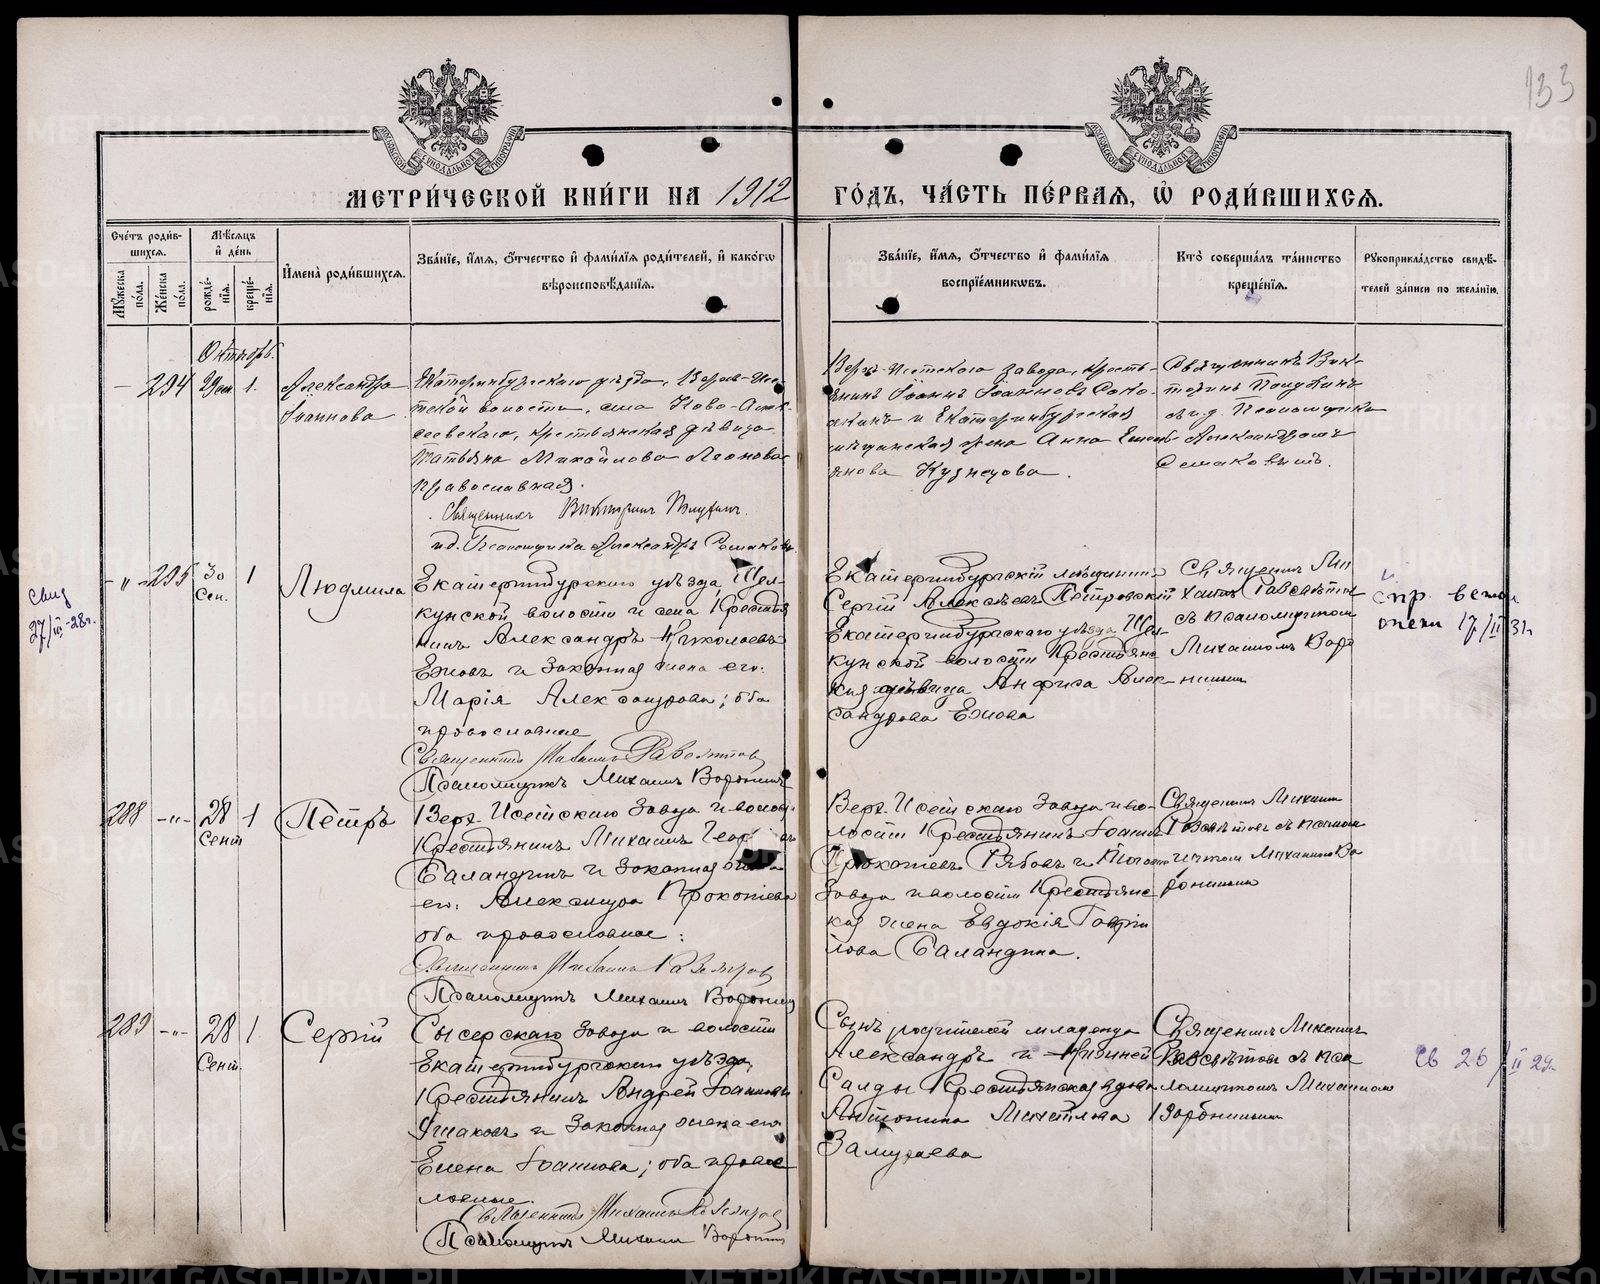 133
МЕТРИ́ЧЕСКОЙ КНИ́ГИ НА 1912 ГО́ДЪ, ЧА́СТЬ ПЕ́РВАЯ, Ѡ҆ РОДИ́ВШИХСѦ.
Счетъ роди́в-
шихсѧ.
Мꙋжеска
по́ла.
Же́нска
по́ла.
Мѣ́сѧцъ
и҆ де́нь
рожде́-
нїѧ.
креще́-
нїѧ.
И҆мена̀ роди́вшихсѧ.
Зва́нїе, и҆́мѧ, ѻ҆́тчество и҆ фами́лїѧ роди́телей, и҆ како́гѡ
вѣроисповѣ́данїѧ.
Зва́нїе, и҆́мѧ, ѻ҆́тчество и҆ фами́лїѧ
воспрїе́мникѡвъ.
Кто̀ соверша́лъ та́инство
креще́нїѧ.
Рꙋкоприкла́дство свидѣ́-
телей за́писи по жела́нїю.
Октябрь.
294
1.
Александра
Іоаннова
Екатеринбургскаго уѣзда, Верхъ-Исе-
тской волости, села Ново-Алек-
сеевскаго, крестьянская дѣвица
Татьяна Михайлова Леонова
православная.
Священникъ Викторинъ
и.д. Псаломщика Александръ Семаковъ
Верхъ-Исетскаго завода, кресть-
янинъ Іоаннъ Іоанновъ Соко-
и Екатеринбургская
мѣщанская жена Анна
Кузнецова.
Священникъ Вик-
торинъ
съ и.д. Псаломщика
Александромъ
Семаковымъ.
-"- 295 30 Сен. 1
Людмила
Екатеринбургскаго уѣзда, Щел-
кунской волости и села Крестья
нинъ Александръ Николаевъ
Ежовъ и законная жена его:
Марія Александрова; оба
православные
Священникъ Михаилъ
Псаломщикъ Михаилъ Воронинъ
Екатеринбургскій мѣщанинъ
Сергій Алексѣевъ Петровскій
Екатеринбургскаго уѣзда Щел-
кунской волости Крестьянс
кая дѣвица Анфиса Алек
сандрова Ежова
Священникъ Ми
хаилъ
съ псаломщикомъ
Михаиломъ Воро
нинымъ
27/III-28г.
спр.
опеки 17/II 31г
288 -"- 28 Сент 1
Петръ
Верх-Исетскаго завода и волос.
Крестьянинъ Михаилъ
Баландинъ и законная жена
его: Александра Прокопіева
оба православные:
Священникъ Михаилъ
Псаломщикъ Михаилъ Воронинъ
Верх-Исетскаго завода и во-
лости Крестьянинъ Іоаннъ
Прокопіевъ Рябовъ и
завода и волости Крестьянс
кая жена Евдокія Гаврiи
лова Баландина.
Священникъ Михаилъ
съ псалом
щикомъ Михаиломъ Во
ронинымъ
289 -"- 28 Сент. 1
Сергій
Сысерскаго завода и волости
Екатеринбургскаго уѣзда,
Крестьянинъ Андрей Іоанновъ
и законная жена его
Елена Іоаннова; оба право
славные.
Священникъ Михаилъ
Псаломщикъ Михаилъ Воронин
Сынъ родителей младенца
Александръ и Нижней
Салды Крестьянская вдова
Антонина
Замураева
Священникъ Михаилъ
съ пса
ломщикомъ Михаиломъ
Воронинымъ
св 26/II 29г.
METRIKI.GASO-URAL.RU